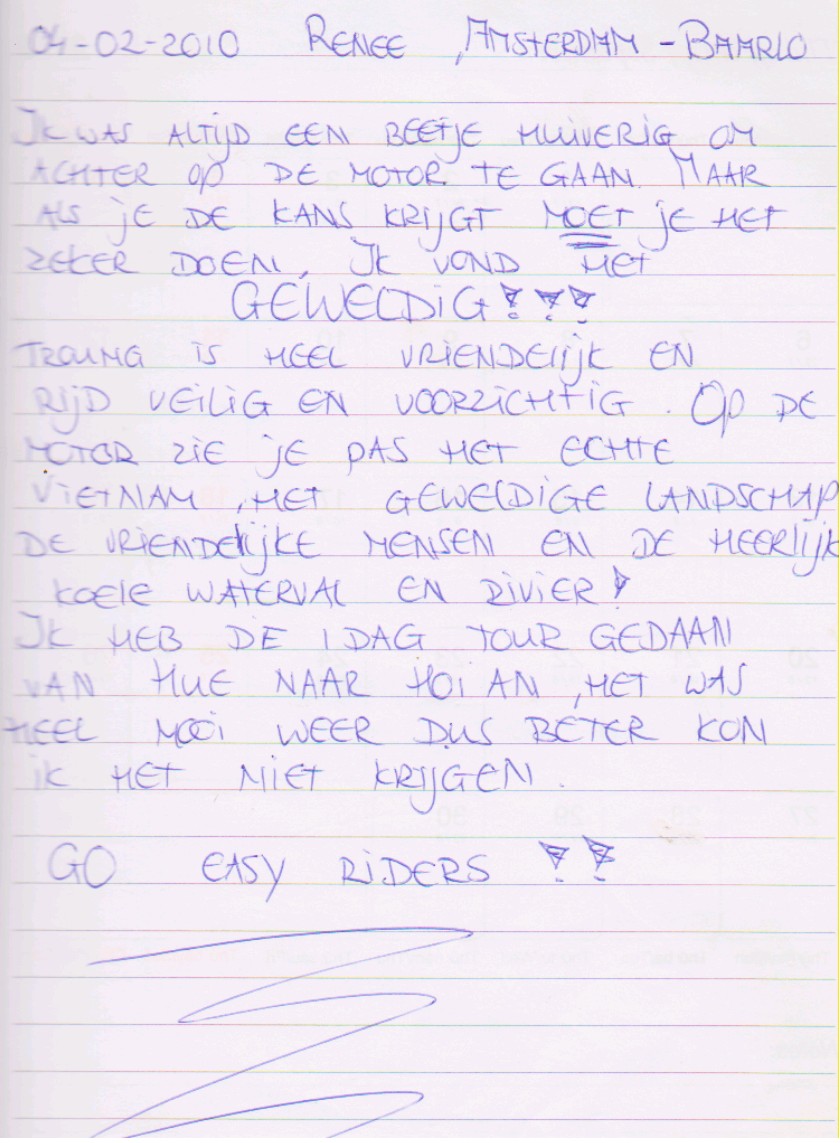 04-02-2010 RENEE, AMSTERDAM - BAARLO
IK WAS ALTIJD EEN BEETJE HUIVERIG OM
ACHTER OP DE MOTOR TE GAAN. MAAR
ALS JE DE KANS KRIJGT MOET JE HET
ZEKER DOEN, IK VOND HET
GEWELDIG!!!
IS HEEL VRIENDELIJK EN
RIJD VEILIG EN VOORZICHTIG. OP DE
MOTOR ZIE JE PAS HET ECHTE
VIETNAM, HET GEWELDIGE LANDSCHAP
DE VRIENDELIJKE MENSEN EN DE HEERLIJK
KOELE WATERVAL EN RIVIER!
IK HEB DE 1 DAG TOUR GEDAAN
VAN HUE NAAR HOI AN, HET WAS
HEEL MOOI WEER DUS BETER KON
IK HET NIET KRIJGEN.
GO EASY RIDERS !!